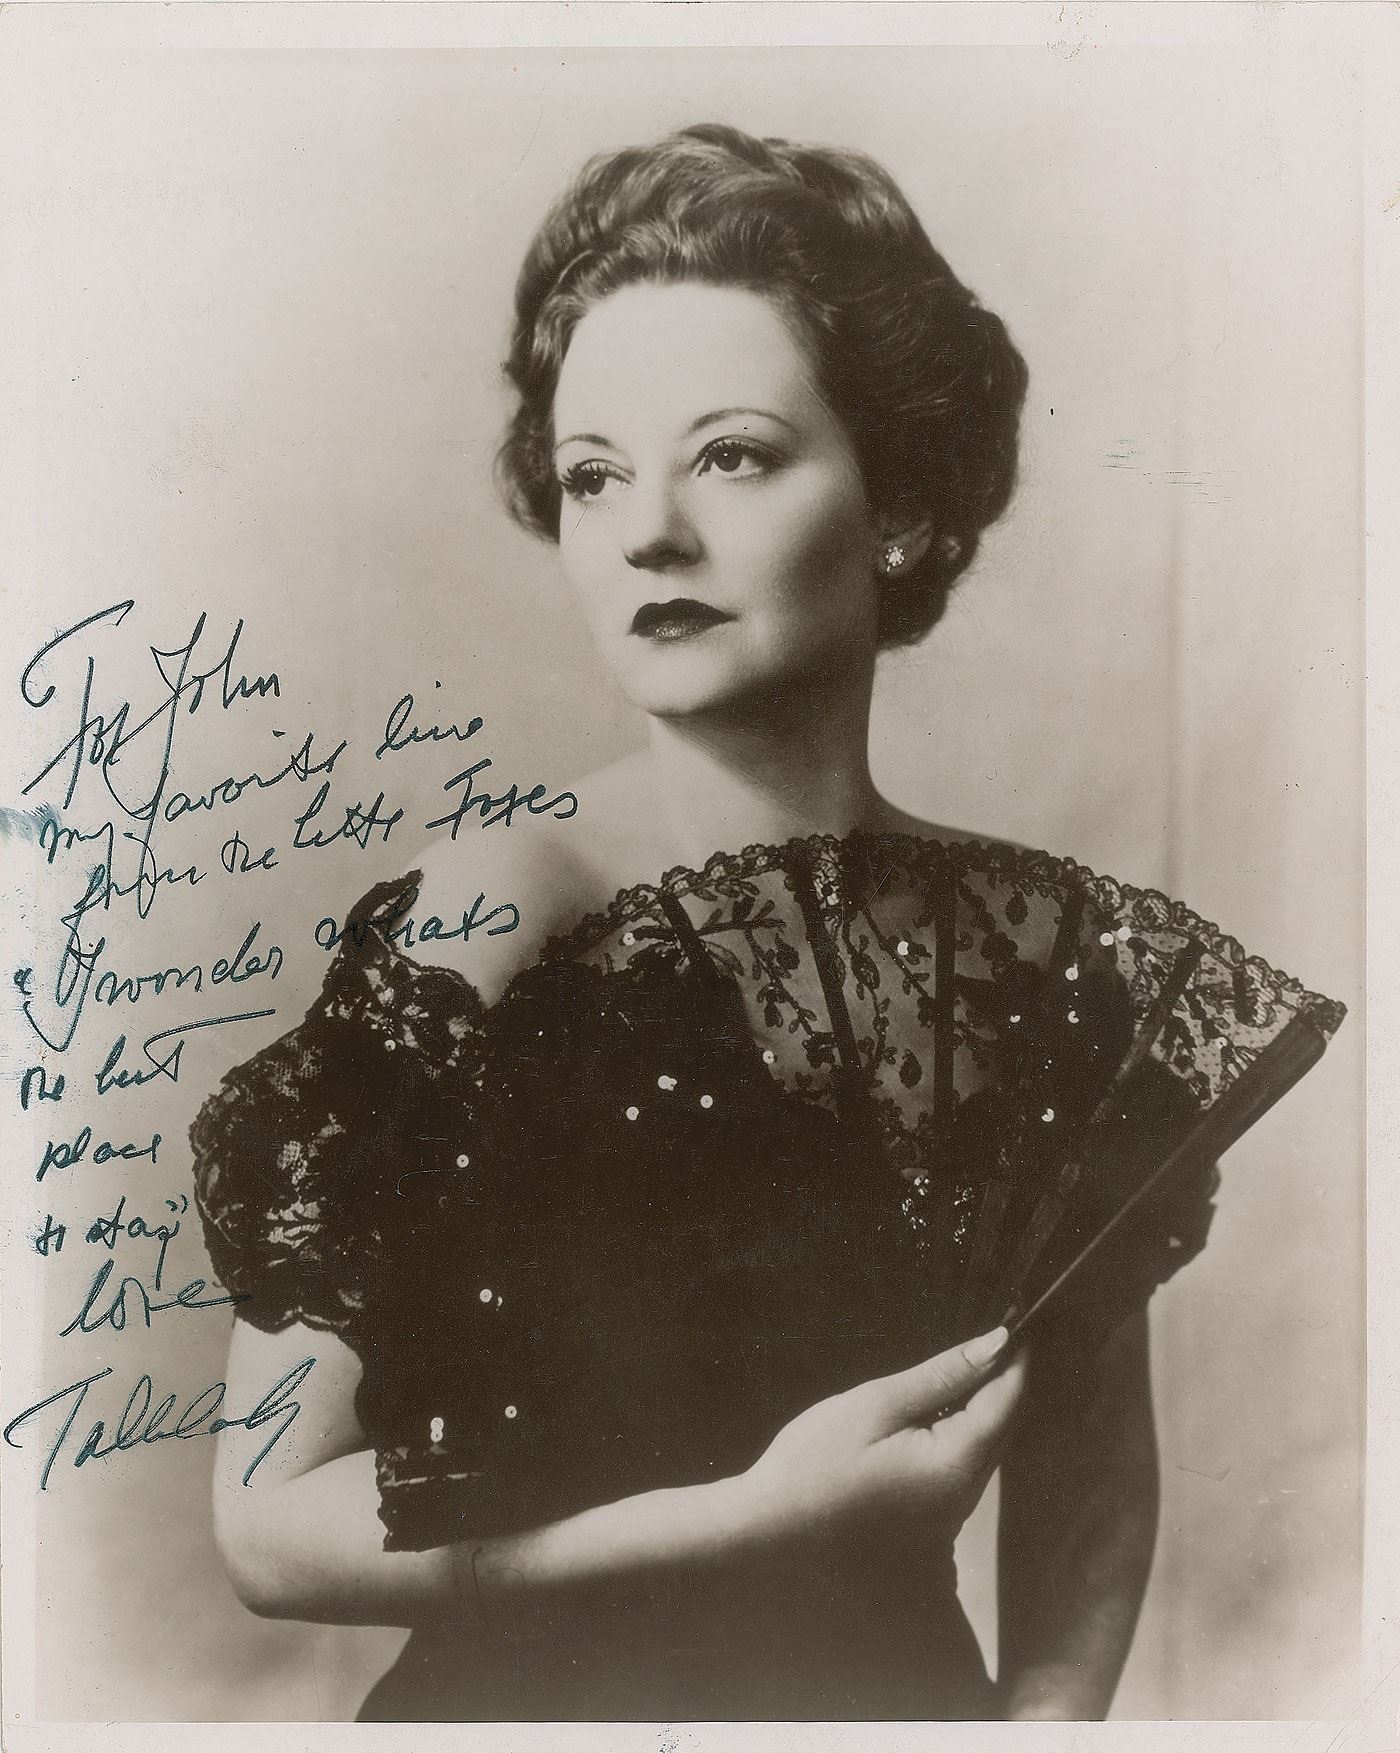 For John
my favorite line
from the little Foxes
"I wonder whats
the best
place
to stay"
love
Tallulah